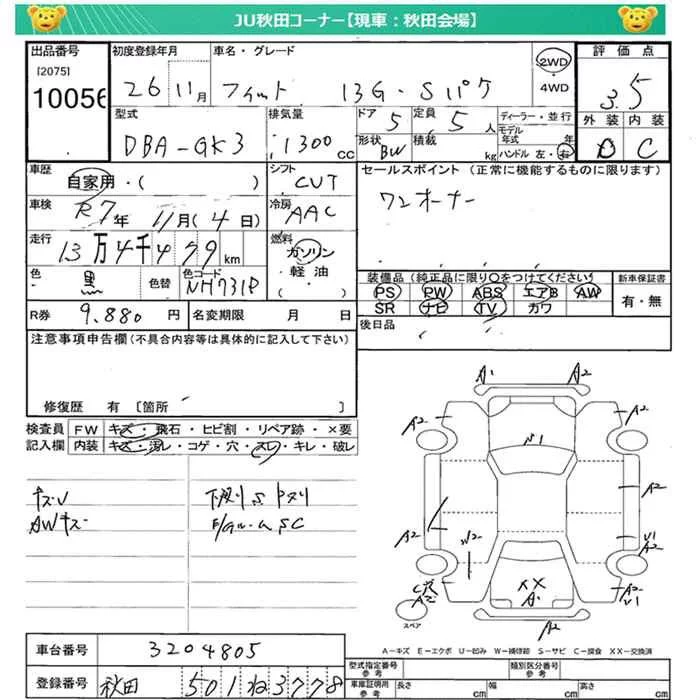 JU秋田コーナー【現車：秋田会場】
出品番号
[2075]
10056
初度登録年月
26 11月
車名・グレード
フィット 13G・Sパケ
2WD
・
4WD
評価点
3.5
外装 内装
D C
型式
DBA-GK3
排気量
1300 CC
ドア
5
形状
BW
定員
5人
積載
kg
ディーラー・並行
モデル
年式 年
ハンドル 左・右
車歴
自家用・( )
シフト
CVT
セールスポイント（正常に機能するものに限ります）
ワンオーナー
車検
R7年 11月(4日)
冷房
AAC
走行
13万4千479km
燃料
ガソリン
・軽油
( )
色
黒
色替
色コード
NH731P
装備品（純正品に限り○をつけてください）
PS PW ABS エアB AW
SR ナビ TV カワ
新車保証書
有・無
R券 9.880円
名変期限 月 日
後日品
注意事項申告欄（不具合内容等は具体的に記入して下さい）
修復歴 有 〔箇所 〕
検査員
記入欄
FW キズ・飛石・ヒビ割・リペア跡・×要
内装 キズ・汚レ・コゲ・穴・スレ・キレ・破レ
キズU
AWキズ
下廻りSトヌリ
A1 A2
A2 A2
S1
A2 A2
W2
U1
A2
XX
A1
A2
U1
A2
スペア
A－キズ E－エクボ U－凹み W－補修跡 S－サビ C－腐食 XX－交換済
車台番号
3204805
登録番号
秋田 501ね3778
型式指定番号
参考
類別区分番号
参考
車庫証明用
参考
長さ cm
幅 cm
高さ cm